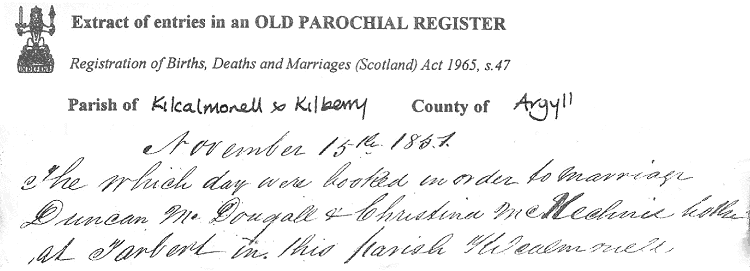 Extract of entries in an OLD PAROCHIAL REGISTER
Registration of Births, Deaths and Marriages (Scotland) Act 1965, s.47
Parish of Kilcalmonell & Kilberry County of Argyll
November 15th 1851.
The which day were booked in order to marriage
Duncan Mc Dougall & Christina both
at Tarbert in this parish